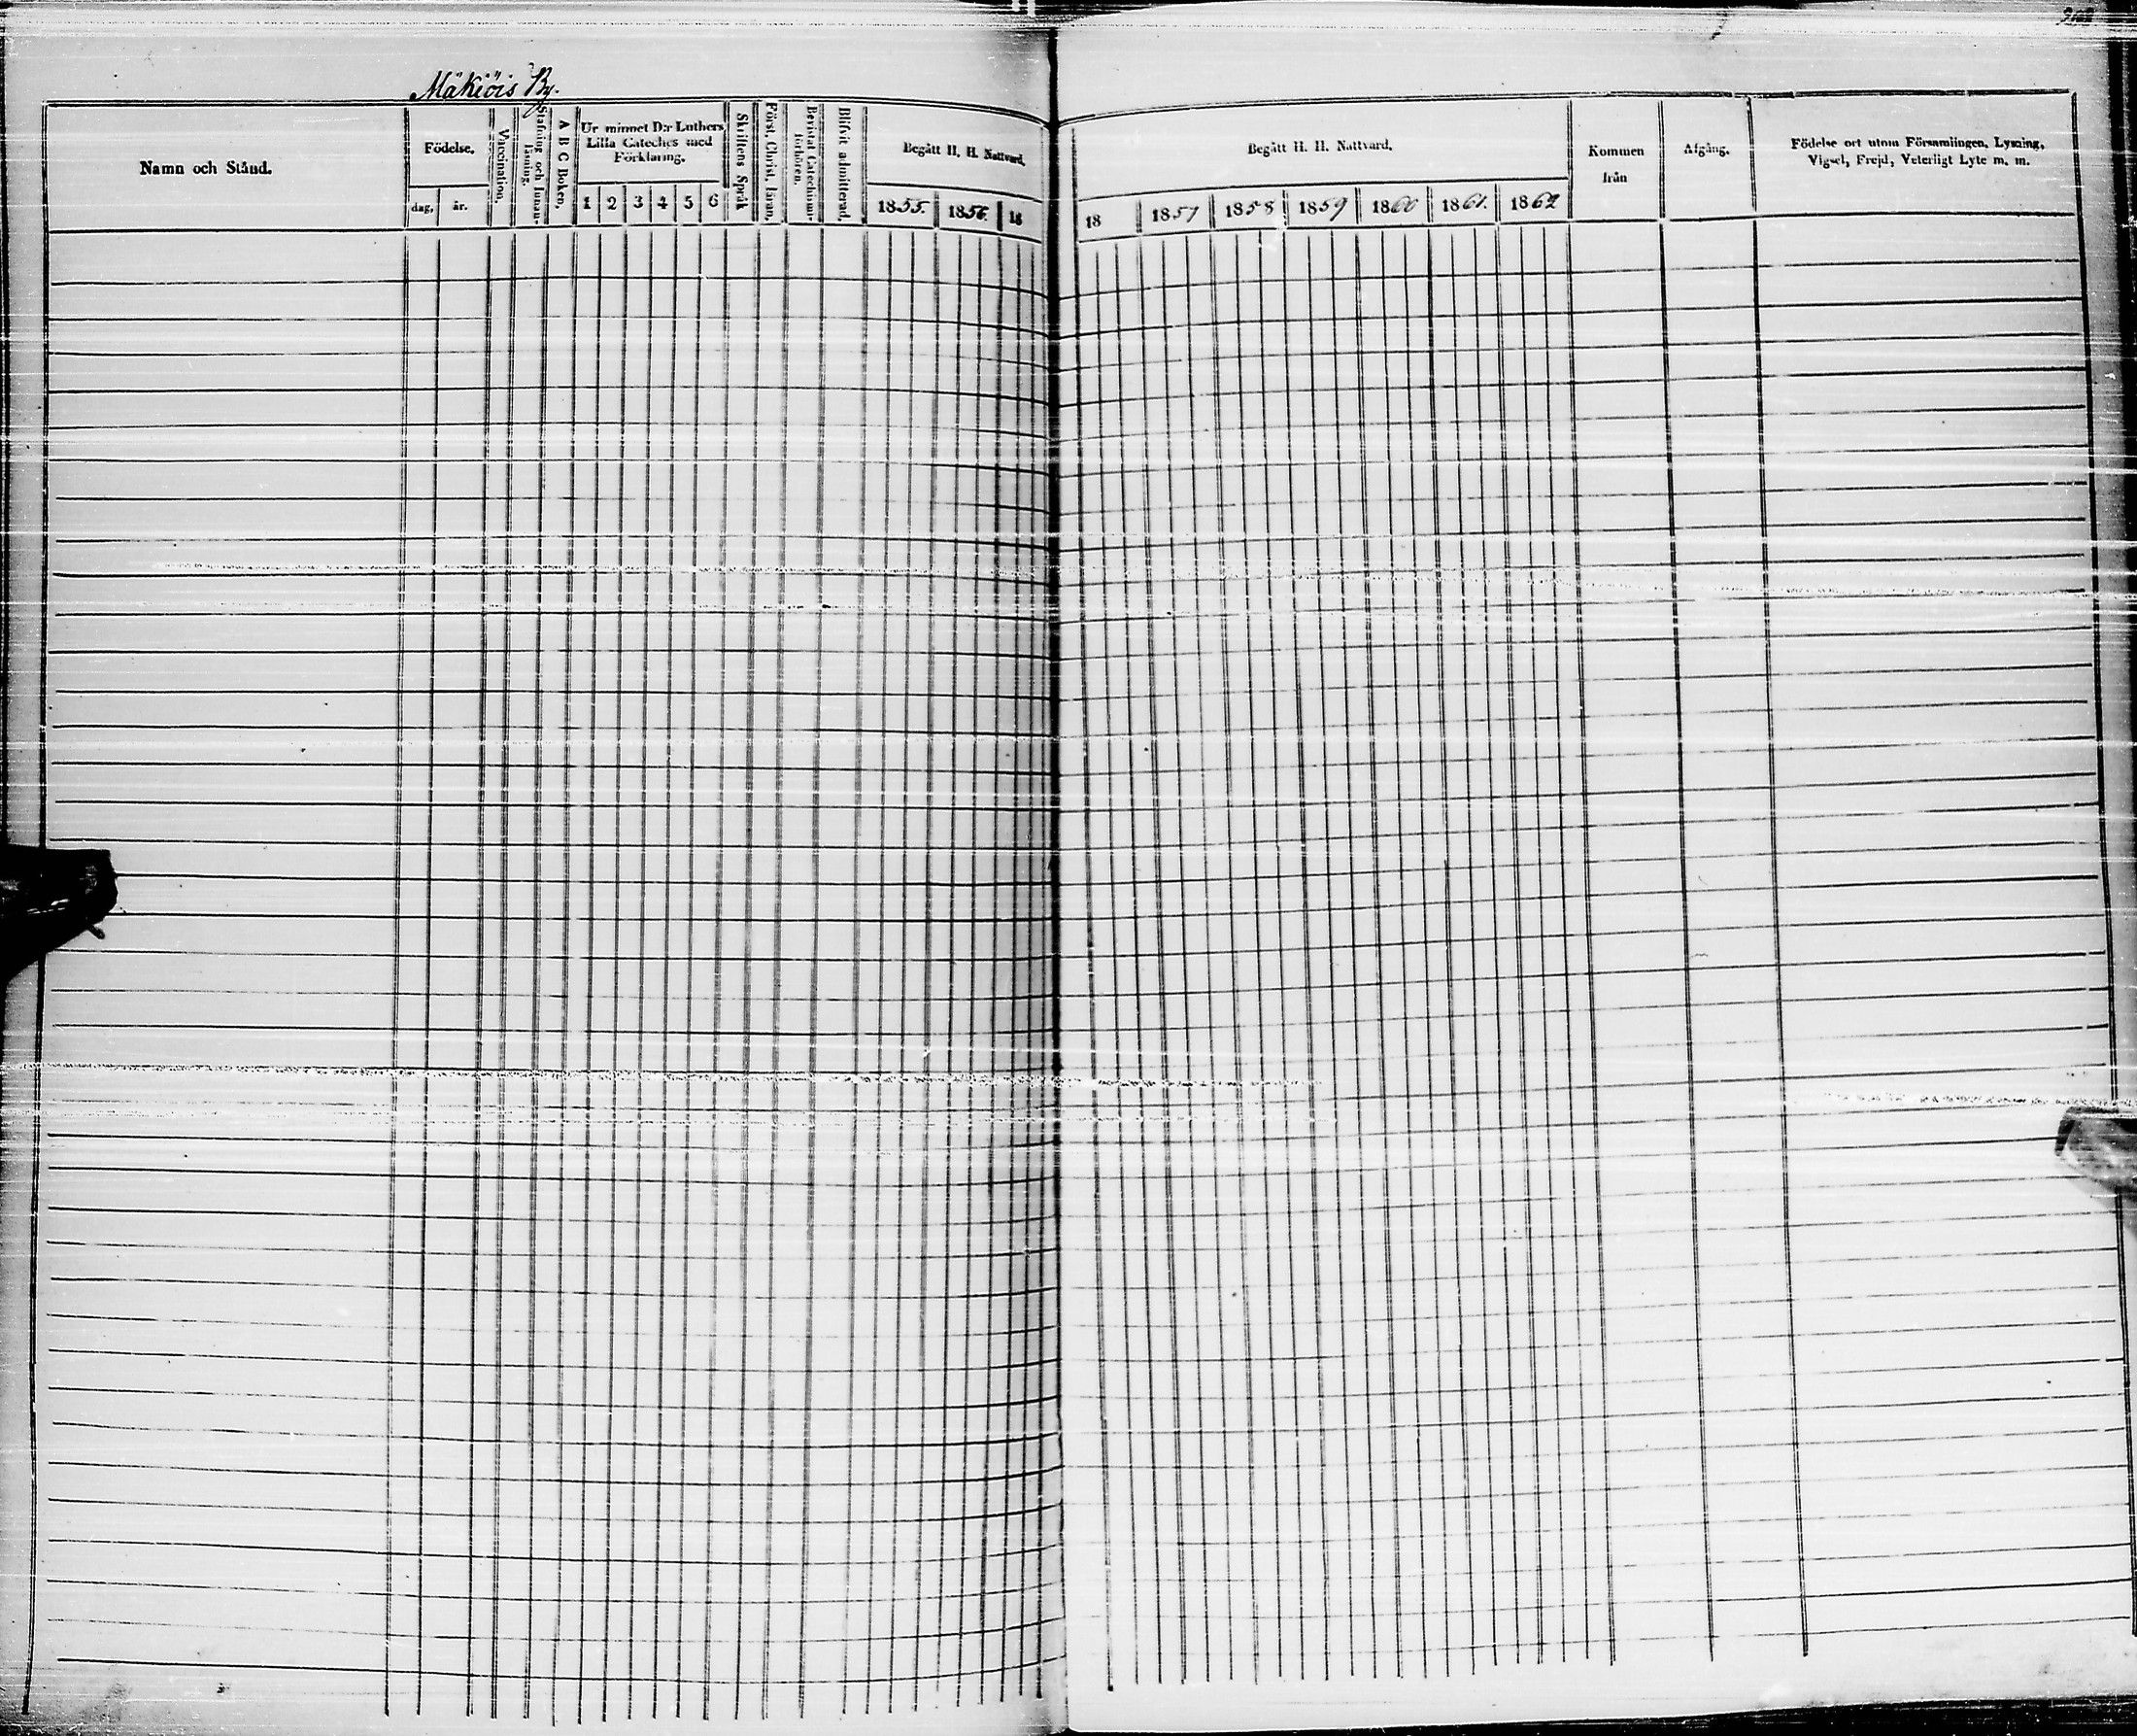 Mäkiöis By.
Namn och Stånd.
Födelse.
dag.
år.
Vaccination.
Stafning och Innan-
läsning.
A B C Boken.
Ur minnet D:r Luthers
Lilla Cateches med
Förklaring.
1 2 3 4 5 6
Skriftens Språk
Först. Christ. Läran.
Bevistat Catechismi-
förhören.
Blifvit admitterad.
Begått H. H. Nattvard.
1855. 1856. 18
Begått H. H. Nattvard.
18 1857 1858 1859 1860 1861. 1862
Kommen
från
Afgång.
Födelse ort utom Församlingen, Lysning,
Vigsel, Frejd, Veterligt Lyte m. m.